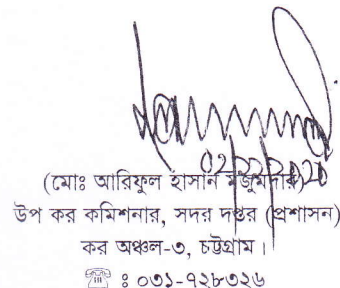 (মোঃ আরিফুল হাসান মজুমদার)
উপ কর কমিশনার, সদর দপ্তর (প্রশাসন)
কর অঞ্চল-৩, চট্টগ্রাম।
☎ ঃ ০৩১-৭২৮৩২৬